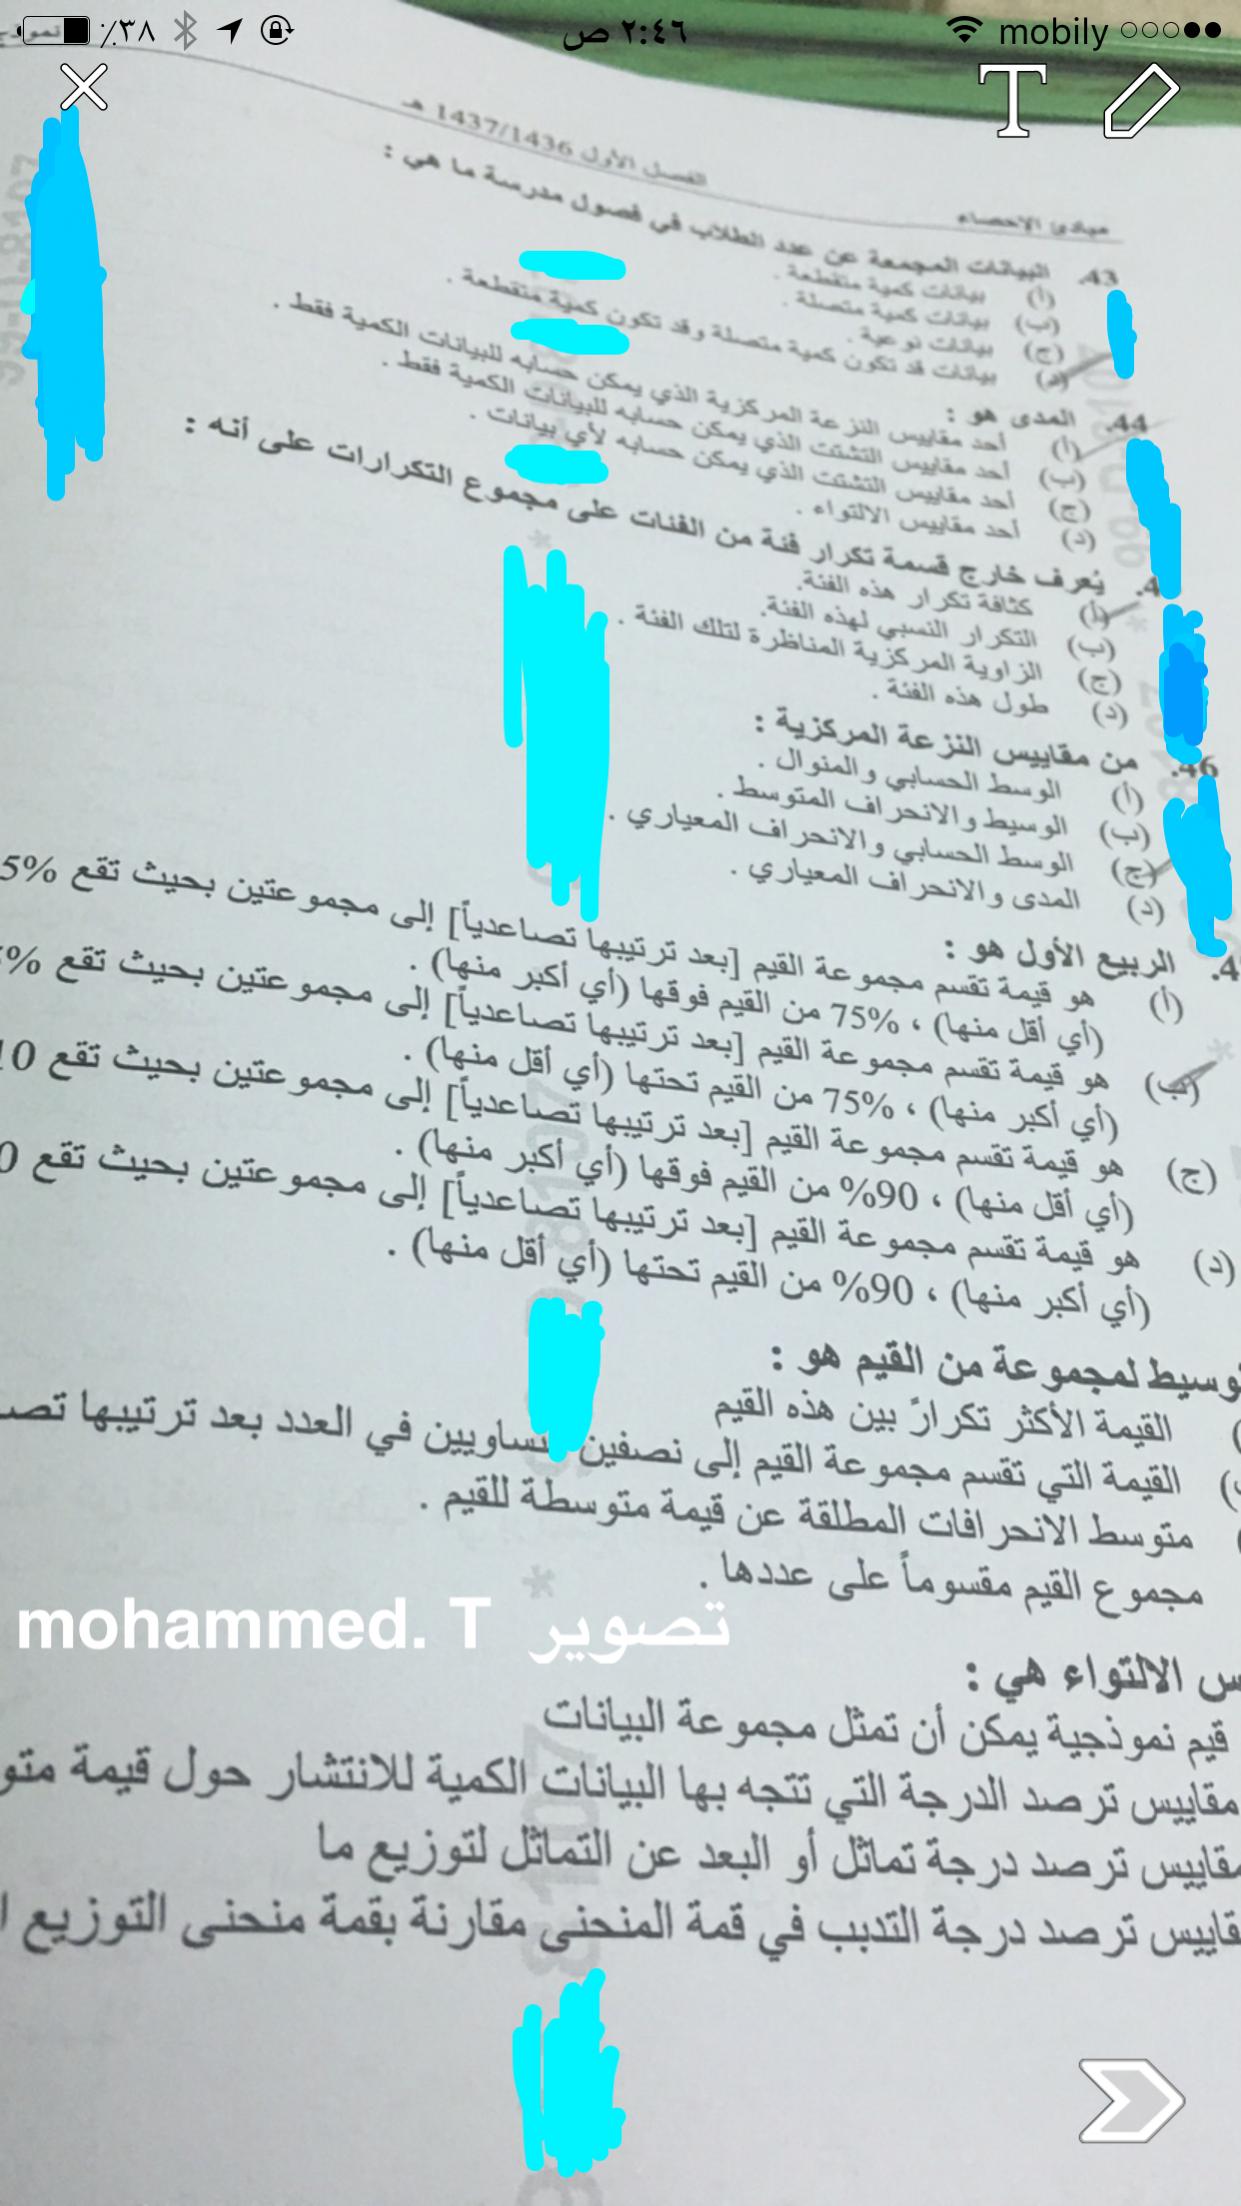 mobily ٢:٤٦ ص ٪٣٨
T
الفصل الأول 1437/1436 هـ
مبادئ الاحصاء
43. البيانات المجمعة عن عدد الطلاب في فصول مدرسة ما هي :
(أ) بيانات كمية متقطعة .
(ب) بيانات كمية متصلة .
(ج) بيانات نوعية .
(د) بيانات قد تكون كمية متصلة وقد تكون كمية متقطعة .
44. المدى هو :
(أ) أحد مقاييس النزعة المركزية الذي يمكن حسابه للبيانات الكمية فقط .
(ب) أحد مقاييس التشتت الذي يمكن حسابه للبيانات الكمية فقط .
(ج) أحد مقاييس التشتت الذي يمكن حسابه لأي بيانات .
(د) أحد مقاييس الالتواء .
يُعرف خارج قسمة تكرار فئة من الفئات على مجموع التكرارات على أنه :
(أ) كثافة تكرار هذه الفئة.
(ب) التكرار النسبي لهذه الفئة.
(ج) الزاوية المركزية المناظرة لتلك الفئة .
(د) طول هذه الفئة .
46. من مقاييس النزعة المركزية :
(أ) الوسط الحسابي والمنوال .
(ب) الوسيط والانحراف المتوسط .
(ج) الوسط الحسابي والانحراف المعياري .
(د) المدى والانحراف المعياري .
الربيع الأول هو :
(أ) هو قيمة تقسم مجموعة القيم [بعد ترتيبها تصاعدياً] إلى مجموعتين بحيث تقع 5%
(أي أقل منها) ، 75% من القيم فوقها (أي أكبر منها) .
(ب) هو قيمة تقسم مجموعة القيم [بعد ترتيبها تصاعدياً] إلى مجموعتين بحيث تقع %
(أي أكبر منها) ، 75% من القيم تحتها (أي أقل منها) .
(ج) هو قيمة تقسم مجموعة القيم [بعد ترتيبها تصاعدياً] إلى مجموعتين بحيث تقع 10
(أي أقل منها) ، 90% من القيم فوقها (أي أكبر منها) .
(د) هو قيمة تقسم مجموعة القيم [بعد ترتيبها تصاعدياً] إلى مجموعتين بحيث تقع 0
(أي أكبر منها) ، 90% من القيم تحتها (أي أقل منها) .
وسيط لمجموعة من القيم هو :
القيمة الأكثر تكرارً بين هذه القيم
القيمة التي تقسم مجموعة القيم إلى نصفين متساويين في العدد بعد ترتيبها تصـ
متوسط الانحرافات المطلقة عن قيمة متوسطة للقيم .
مجموع القيم مقسوماً على عددها .
تصوير mohammed. T
س الالتواء هي :
قيم نموذجية يمكن أن تمثل مجموعة البيانات
مقاييس ترصد الدرجة التي تتجه بها البيانات الكمية للانتشار حول قيمة متو
مقاييس ترصد درجة تماثل أو البعد عن التماثل لتوزيع ما
قاييس ترصد درجة التدبب في قمة المنحنى مقارنة بقمة منحنى التوزيع ا